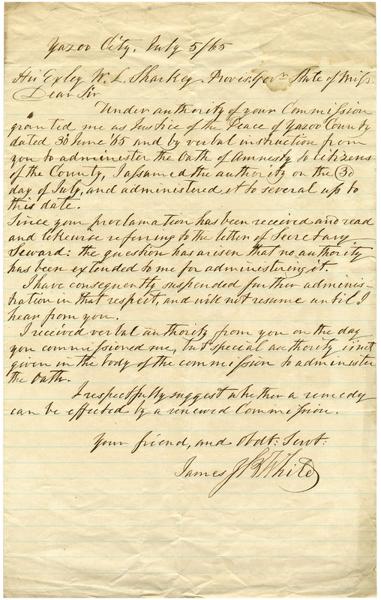 Yazoo City, July 5/65
His Excy W. L. Sharkey Provis. Govr. State of Miss.
Dear Sir
Under authority of your Commission
granted me as Justice of the Peace of Yazoo County
dated 30 June '65 and by verbal instruction from
you to administer the Oath of Amnesty to citizens
of the County, I assumed the authority on the (3d)
day of July, and administered it to several up to
this date.
Since your proclamation has been received and read
and likewise referring to the letter of Secretary
Seward: the question has arisen that no authority
has been extended to me for administering it.
I have consequently suspended further adminis-
tration in that respect, and will not resume until I
hear from you.
I received verbal authority from you on the day
you commissioned me, but special authority is not
given in the body of the commission to administer
the Oath.
I respectfully suggest whether a remedy
can be effected by a renewed Commission.
Your friend, and Obdt: Servt:
James J. B. White